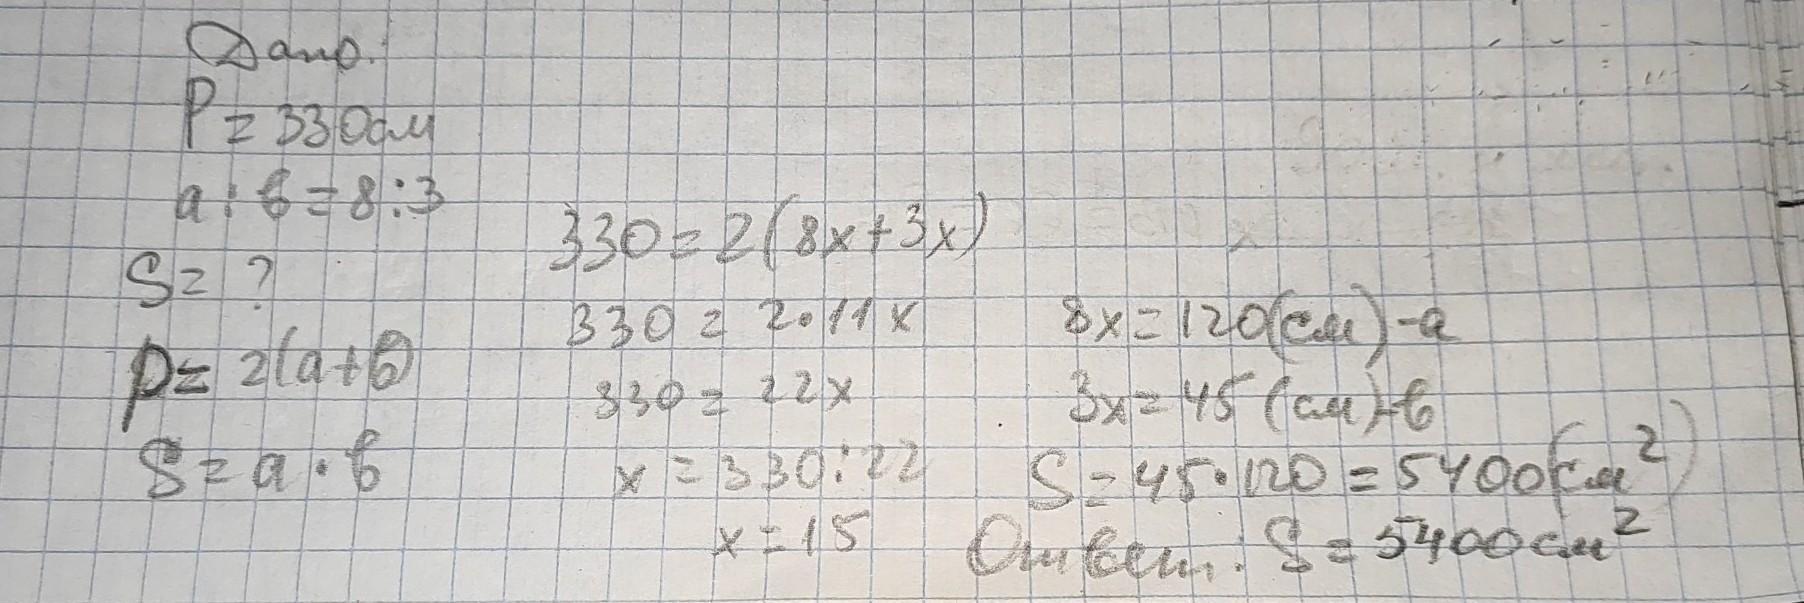 Дано:
P = 330см
a : b = 8 : 3
S = ?
p = 2(a+b)
S = a · b
330 = 2(8x+3x)
330 = 2·11x
330 = 22x
x = 330:22
x = 15
8x = 120(см)-a
3x = 45 (см)-b
S = 45·120 = 5400(см²)
Ответ: S = 5400см²